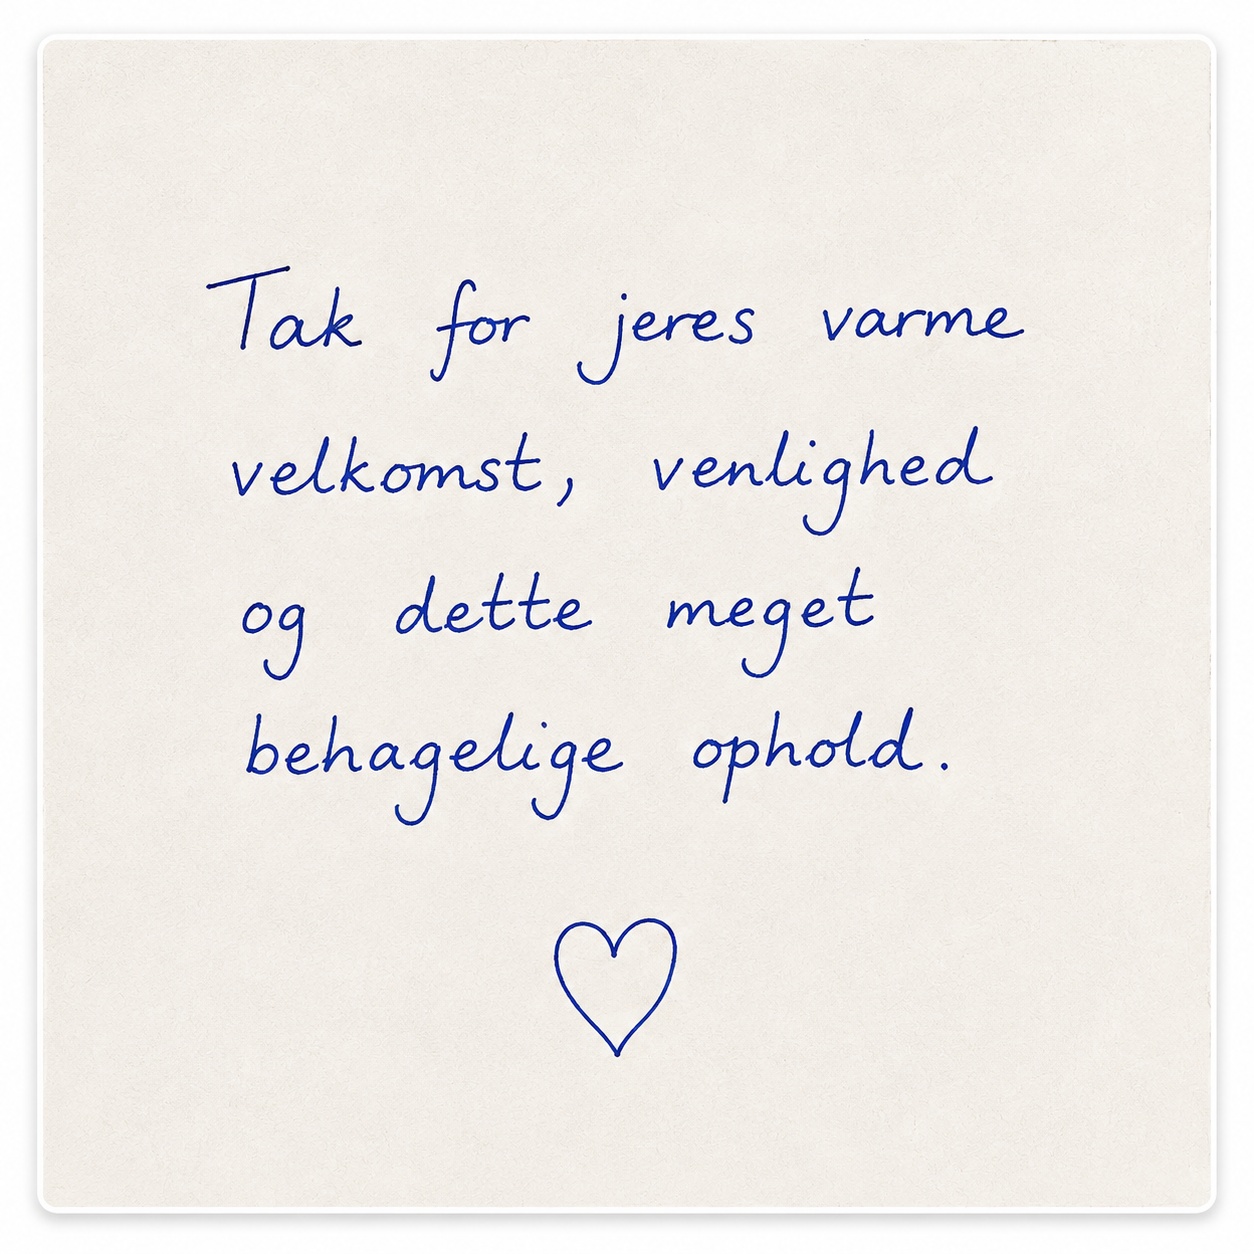 Tak for jeres varme
velkomst, venlighed
og dette meget
behagelige ophold.